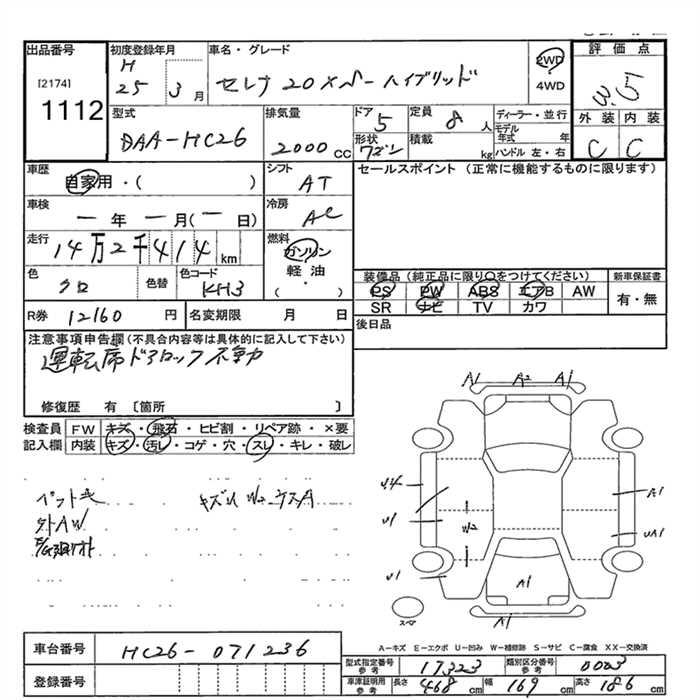 出品番号
[2174]
1112
初度登録年月
H
25 3 月
車名・グレード
セレナ 20X S-ハイブリッド
2WD
4WD
評価点
3.5
外装 内装
C C
型式
DAA-HC26
排気量
2000 CC
ドア
5
形状
ワゴン
定員
8 人
積載
kg
ディーラー・並行
モデル年式 年
ハンドル 左・右
車歴
自家用・( )
シフト
AT
セールスポイント (正常に機能するものに限ります)
車検
一 年 一 月 (一 日)
冷房
AC
走行
14万2千414 km
燃料
ガソリン
軽油・
( )
色
クロ
色替
色コード
KH3
装備品 (純正品に限り○をつけてください)
新車保証書
PS PW ABS エアB AW
SR ナビ TV カワ
有・無
R券 12160 円
名変期限 月 日
後日品
注意事項申告欄(不具合内容等は具体的に記入して下さい)
運転席ドアロック不動
修復歴 有 〔箇所 〕
検査員
記入欄
FW キズ・飛石・ヒビ割・リペア跡・×要
内装 キズ・汚レ・コゲ・穴・スレ・キレ・破レ
外AW
キズ小 W2 ウスA
A1 A2 A1
U4
U1
W2
A1
UA1
U1
A1
A1
スペア
A-キズ E-エクボ U-凹み W-補修跡 S-サビ C-腐食 XX-交換済
車台番号 HC26-071236
登録番号
型式指定番号 参考 17323 類別区分番号 参考 0003
車庫証明用 参考 長さ 468 cm 幅 169 cm 高さ 186 cm